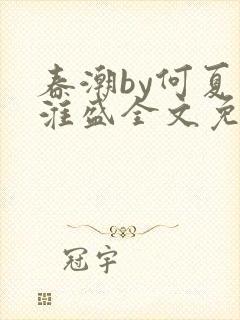 春潮by何夏
淮盛全文免
冠宇